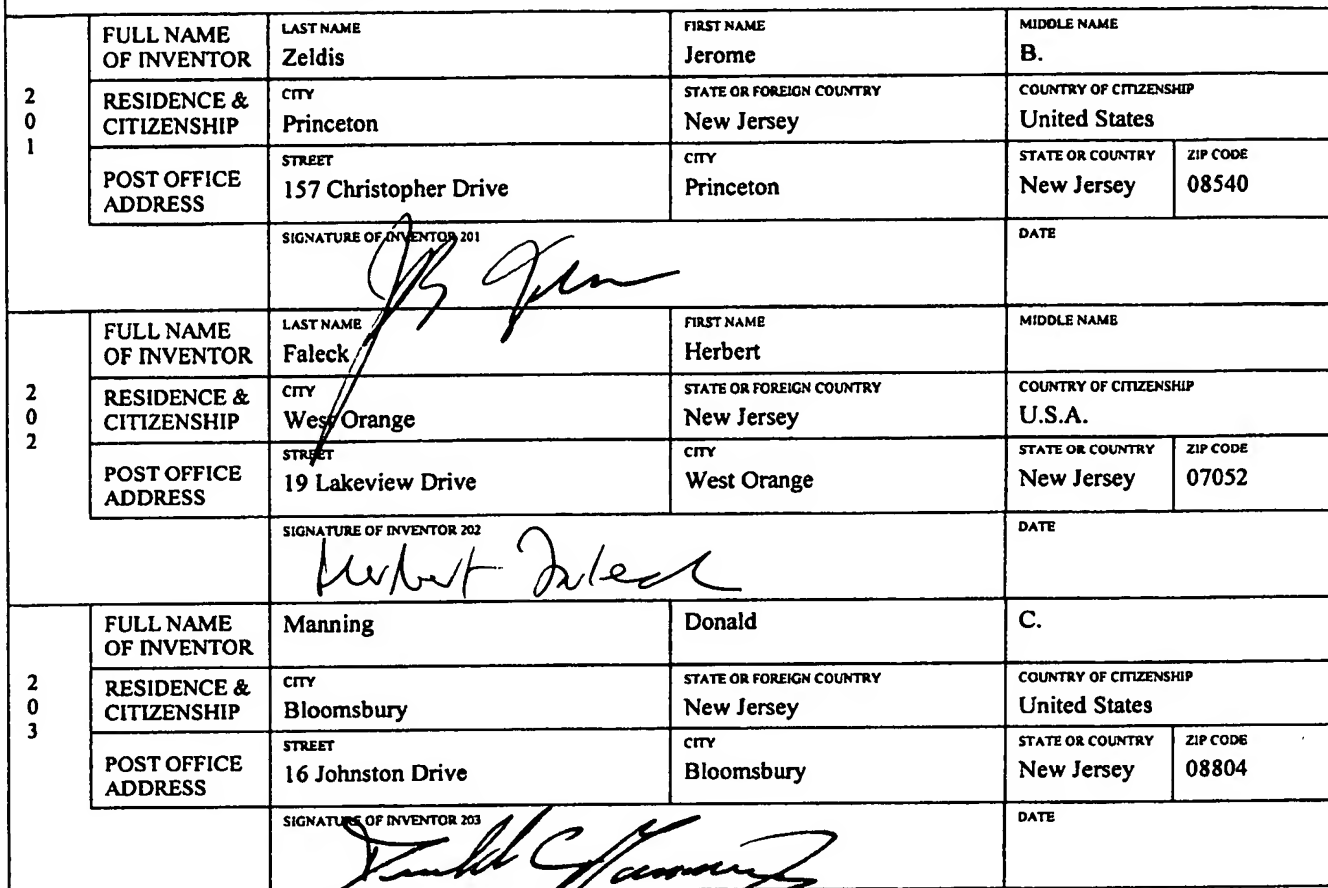 FULL NAME OF INVENTOR LAST NAME Zeldis FIRST NAME Jerome MIDDLE NAME B.
201 RESIDENCE & CITIZENSHIP CITY Princeton STATE OR FOREIGN COUNTRY New Jersey COUNTRY OF CITIZENSHIP United States
POST OFFICE ADDRESS STREET 157 Christopher Drive CITY Princeton STATE OR COUNTRY New Jersey ZIP CODE 08540
SIGNATURE OF INVENTOR 201 DATE
FULL NAME OF INVENTOR LAST NAME Faleck FIRST NAME Herbert MIDDLE NAME
202 RESIDENCE & CITIZENSHIP CITY West Orange STATE OR FOREIGN COUNTRY New Jersey COUNTRY OF CITIZENSHIP U.S.A.
POST OFFICE ADDRESS STREET 19 Lakeview Drive CITY West Orange STATE OR COUNTRY New Jersey ZIP CODE 07052
SIGNATURE OF INVENTOR 202 DATE
Herbert Faleck
FULL NAME OF INVENTOR Manning Donald C.
203 RESIDENCE & CITIZENSHIP CITY Bloomsbury STATE OR FOREIGN COUNTRY New Jersey COUNTRY OF CITIZENSHIP United States
POST OFFICE ADDRESS STREET 16 Johnston Drive CITY Bloomsbury STATE OR COUNTRY New Jersey ZIP CODE 08804
SIGNATURE OF INVENTOR 203 DATE
Donald C Manning